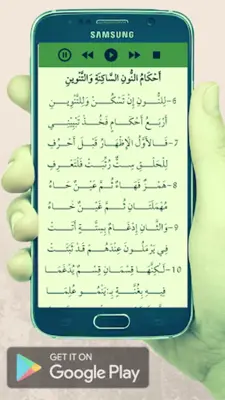 SAMSUNG
أَحْكَامُ النُّونِ السَّاكِنَةِ وَالتَّنْوِينِ
6- لِلنُّونِ إِنْ تَسْكُنْ وَلِلتَّنْوِينِ
أَرْبَعُ أَحْكَامٍ فَخُذْ تَبْيِينِي
7- فَالْأَوَّلُ الْإِظْهَارُ قَبْلَ أَحْرُفِ
لِلْحَلْقِ سِتٌّ رُتِّبَتْ فَلْتَعْرِفِ
8- هَمْزٌ فَهَاءٌ ثُمَّ عَيْنٌ حَاءُ
مُهْمَلَتَانِ ثُمَّ غَيْنٌ خَاءُ
9- وَالثَّانِ إِدْغَامٌ بِسِتَّةٍ أَتَتْ
فِي يَرْمُلُونَ عِنْدَهُمْ قَدْ ثَبَتَتْ
10- لَكِنَّهَا قِسْمَانِ قِسْمٌ يُدْغَمَا
فِيهِ بِغُنَّةٍ بِـيَنْمُو عُلِمَا
GET IT ON
Google Play